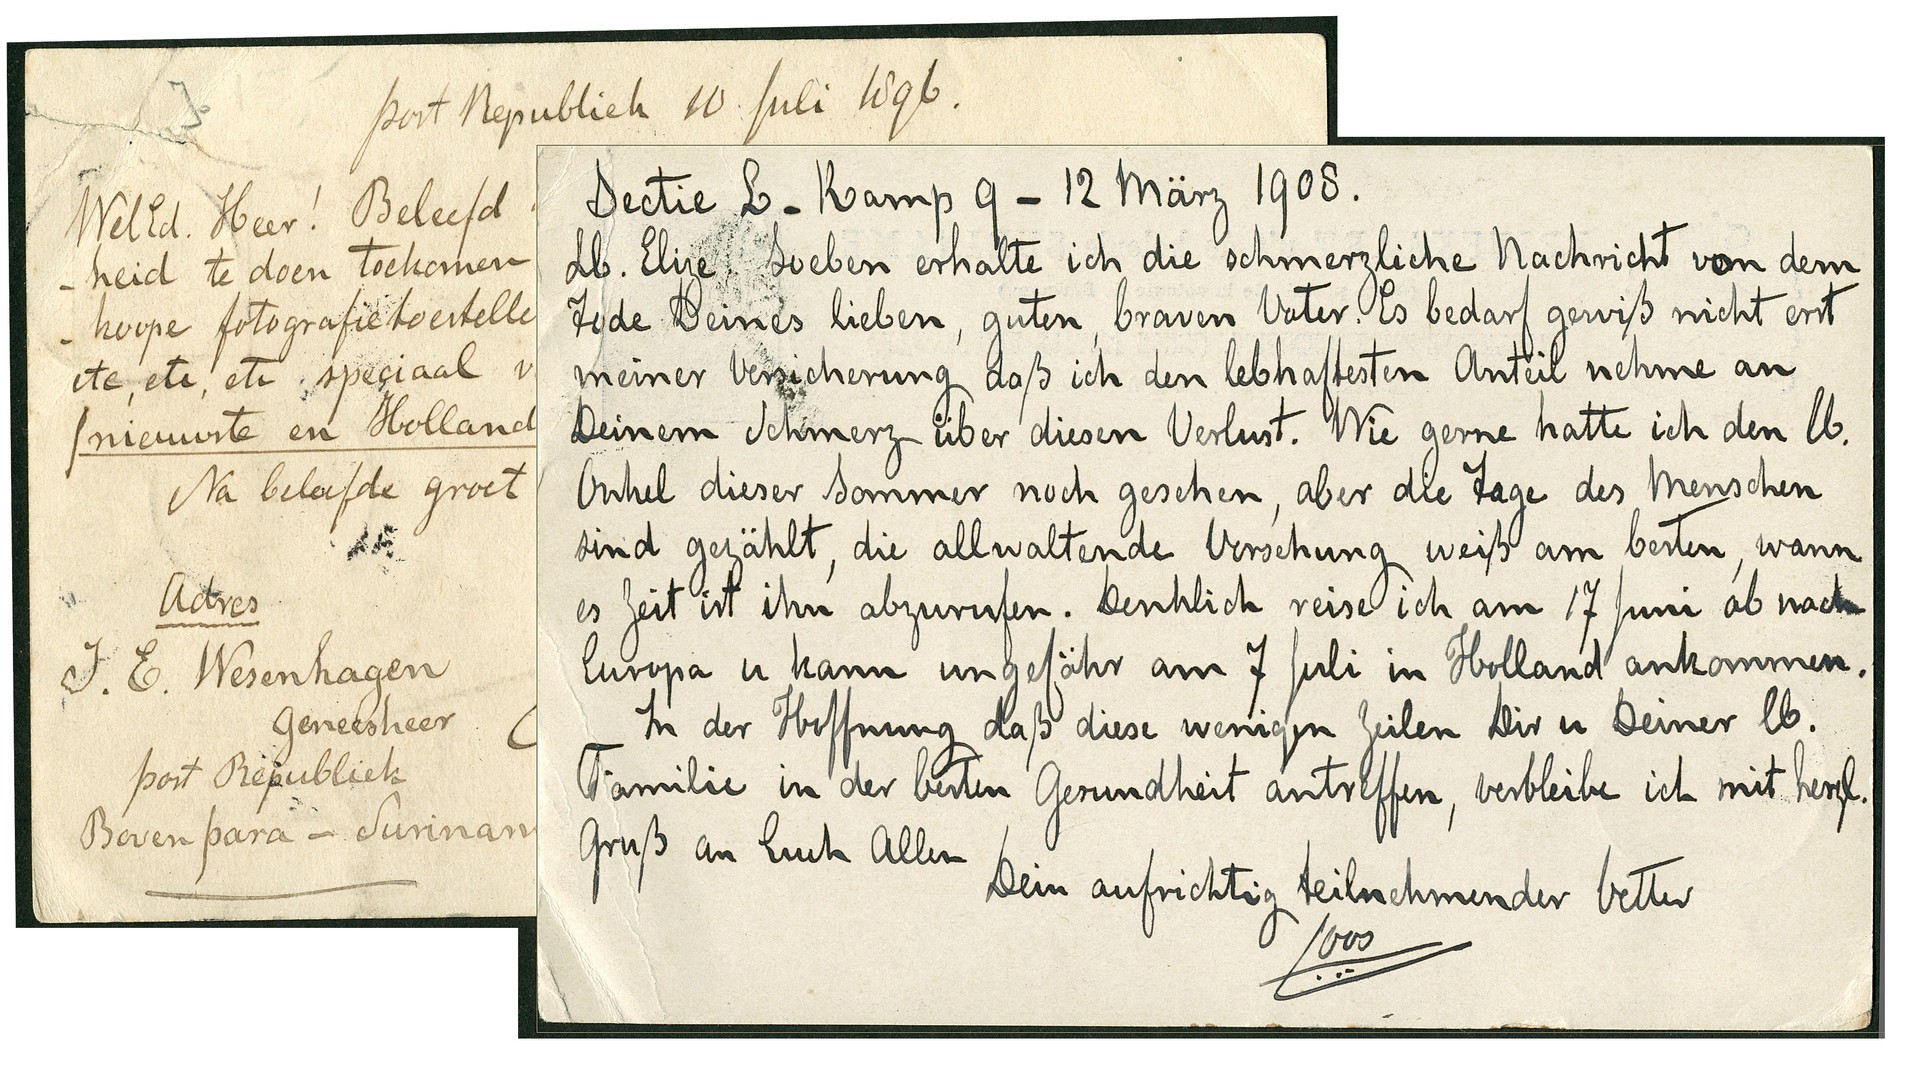 post Republiek 10 Juli 1896.
WelEd. Heer! Beleefd
-heid te doen toekomen
-koope fotografietoestelle
etc, etc, etc speciaal v
nieuwste en Holland
Na beleefde groet
Adres
J. E. Wesenhagen
Geneesheer
post Republiek
Boven para - Surinam
Sectie L - Kamp 9 - 12 März 1908.
Lb. Elize! Soeben erhalte ich die schmerzliche Nachricht von dem
Tode Deines lieben, guten, braven Vater. Es bedarf gewiß nicht erst
meiner Versicherung daß ich den lebhaftesten Anteil nehme an
Deinem Schmerz über diesen Verlust. Wie gerne hatte ich den lb.
Onkel dieser Sommer noch gesehen, aber die Tage des Menschen
sind gezählt, die allwaltende Vorsehung weiß am besten, wann
es Zeit ist ihn abzurufen. Denklich reise ich am 17 Juni ab nach
Europa u kann ungefähr am 7 Juli in Holland ankommen.
In der Hoffnung daß diese wenigen Zeilen Dir u Deiner lb.
Familie in der besten Gesundheit antreffen, verbleibe ich mit herzl.
Gruß an Euch Allen
Dein aufrichtig teilnehmender Vetter
Joos